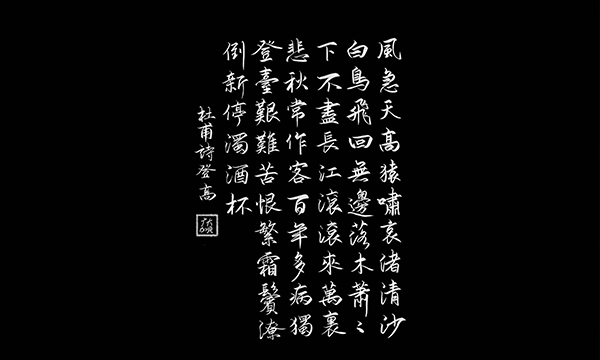 風急天高猿嘯哀渚清沙
白鳥飛回無邊落木蕭〻
下不盡長江滾滾來萬裏
悲秋常作客百年多病獨
登臺艱難苦恨繁霜鬢潦
倒新停濁酒杯
杜甫詩登高